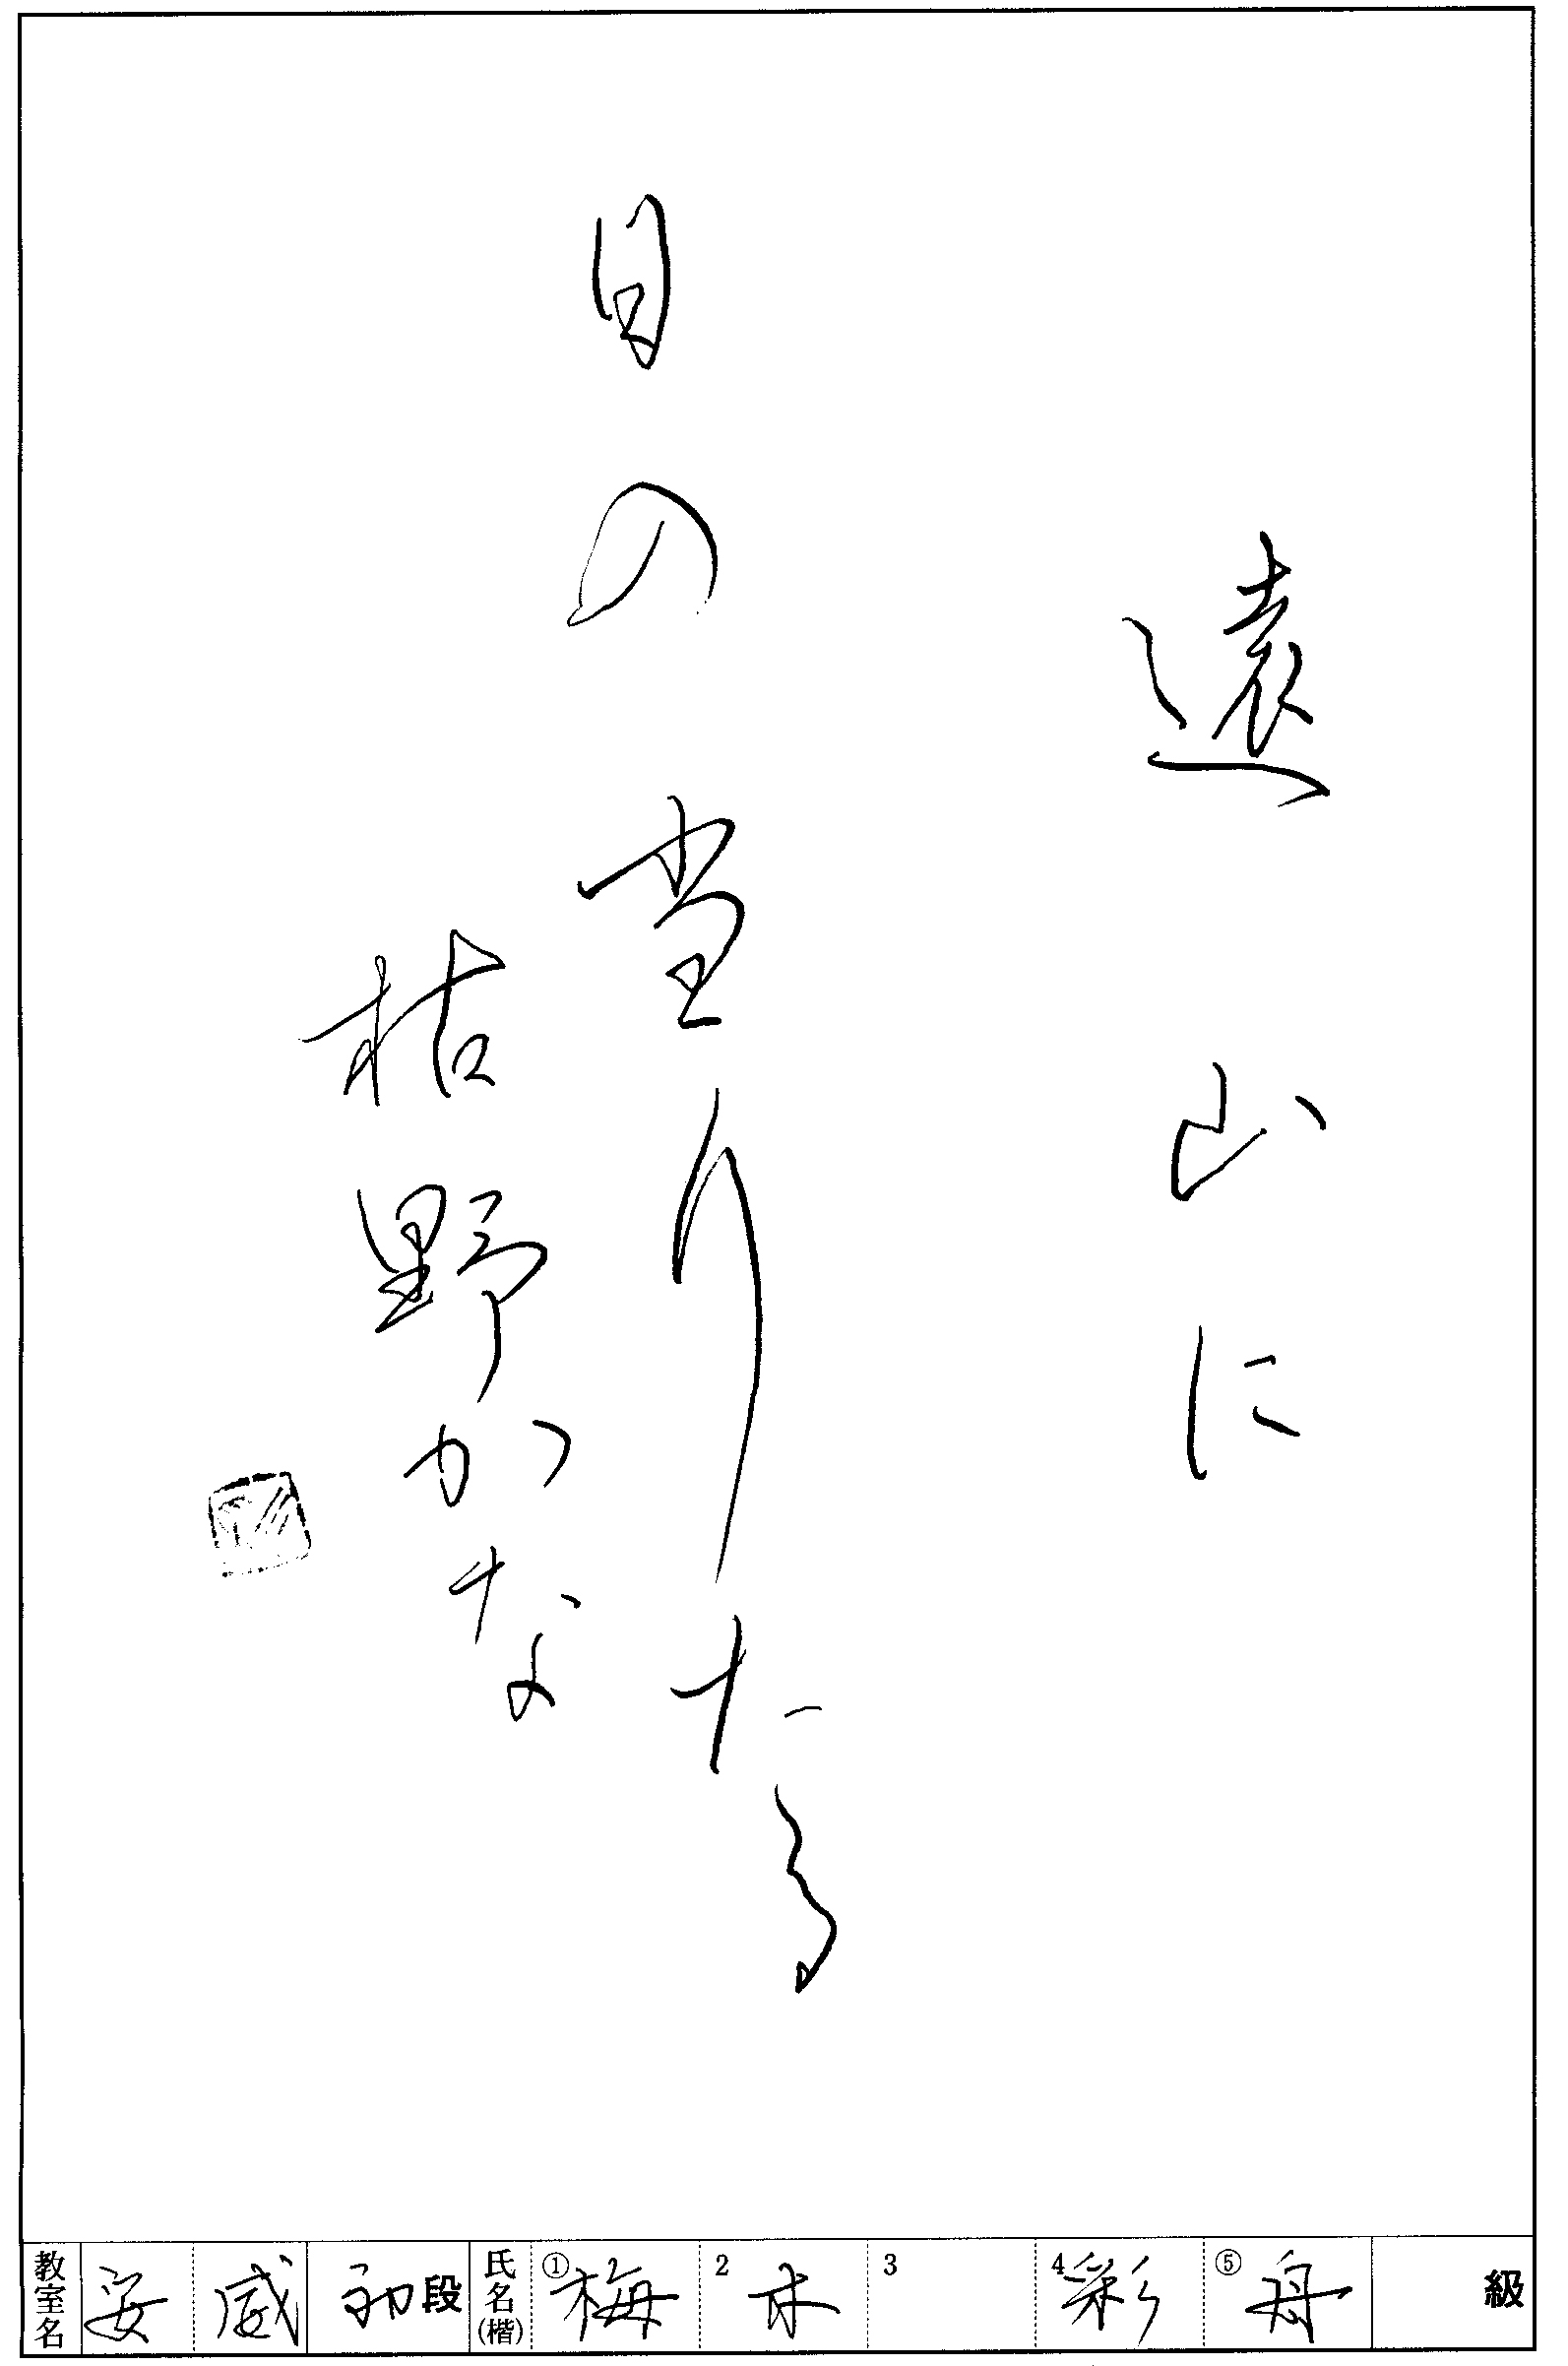 遠山に
日の当りたる
枯野かな
教室名 安威 初段 氏名(楷) ①梅 2木 3 4彩 ⑤舟 級